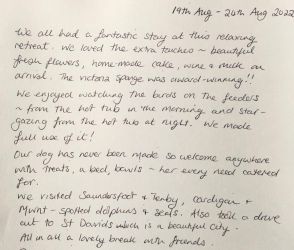 19th Aug - 26th Aug 2022
We all had a fantastic stay at this relaxing
retreat. We loved the extra touches ~ beautiful
fresh flowers, home-made cake, wine & milk on
arrival. The victoria sponge was award-winning!!
We enjoyed watching the birds on the feeders
~ from the hot tub in the morning and star-
gazing from the hot tub at night. We made
full use of it!
Our dog has never been made so welcome anywhere
with treats, a bed, bowls ~ her every need catered
for.
We visited Saundersfoot & Tenby, Cardigan &
Mwnt - spotted dolphins & seals. Also took a drive
out to St Davids which is a beautiful city.
All in all a lovely break with friends.